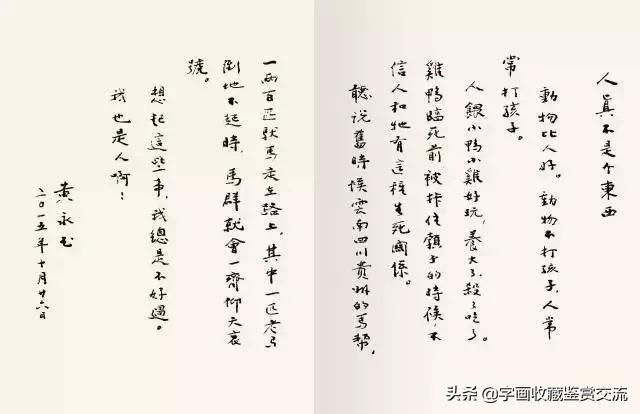 人真不是个東西
動物比人好。動物不打孩子，人常
常打孩子。
人餵小鴨小雞好玩，養大了，殺了吃了。
雞鴨臨死前被抓住頸子的時候，不
信人和牠有這種生死國係。
聽說舊時候雲南四川貴州的馬幫，
一兩百匹馱馬走在路上，其中一匹老了
倒地不起時，馬群就會一齊仰天哀
號。
想起這些事，我總是不好過。
我也是人啊！
黃永玉
二〇一五年十月廿六日
头条 @字画收藏鉴赏交流